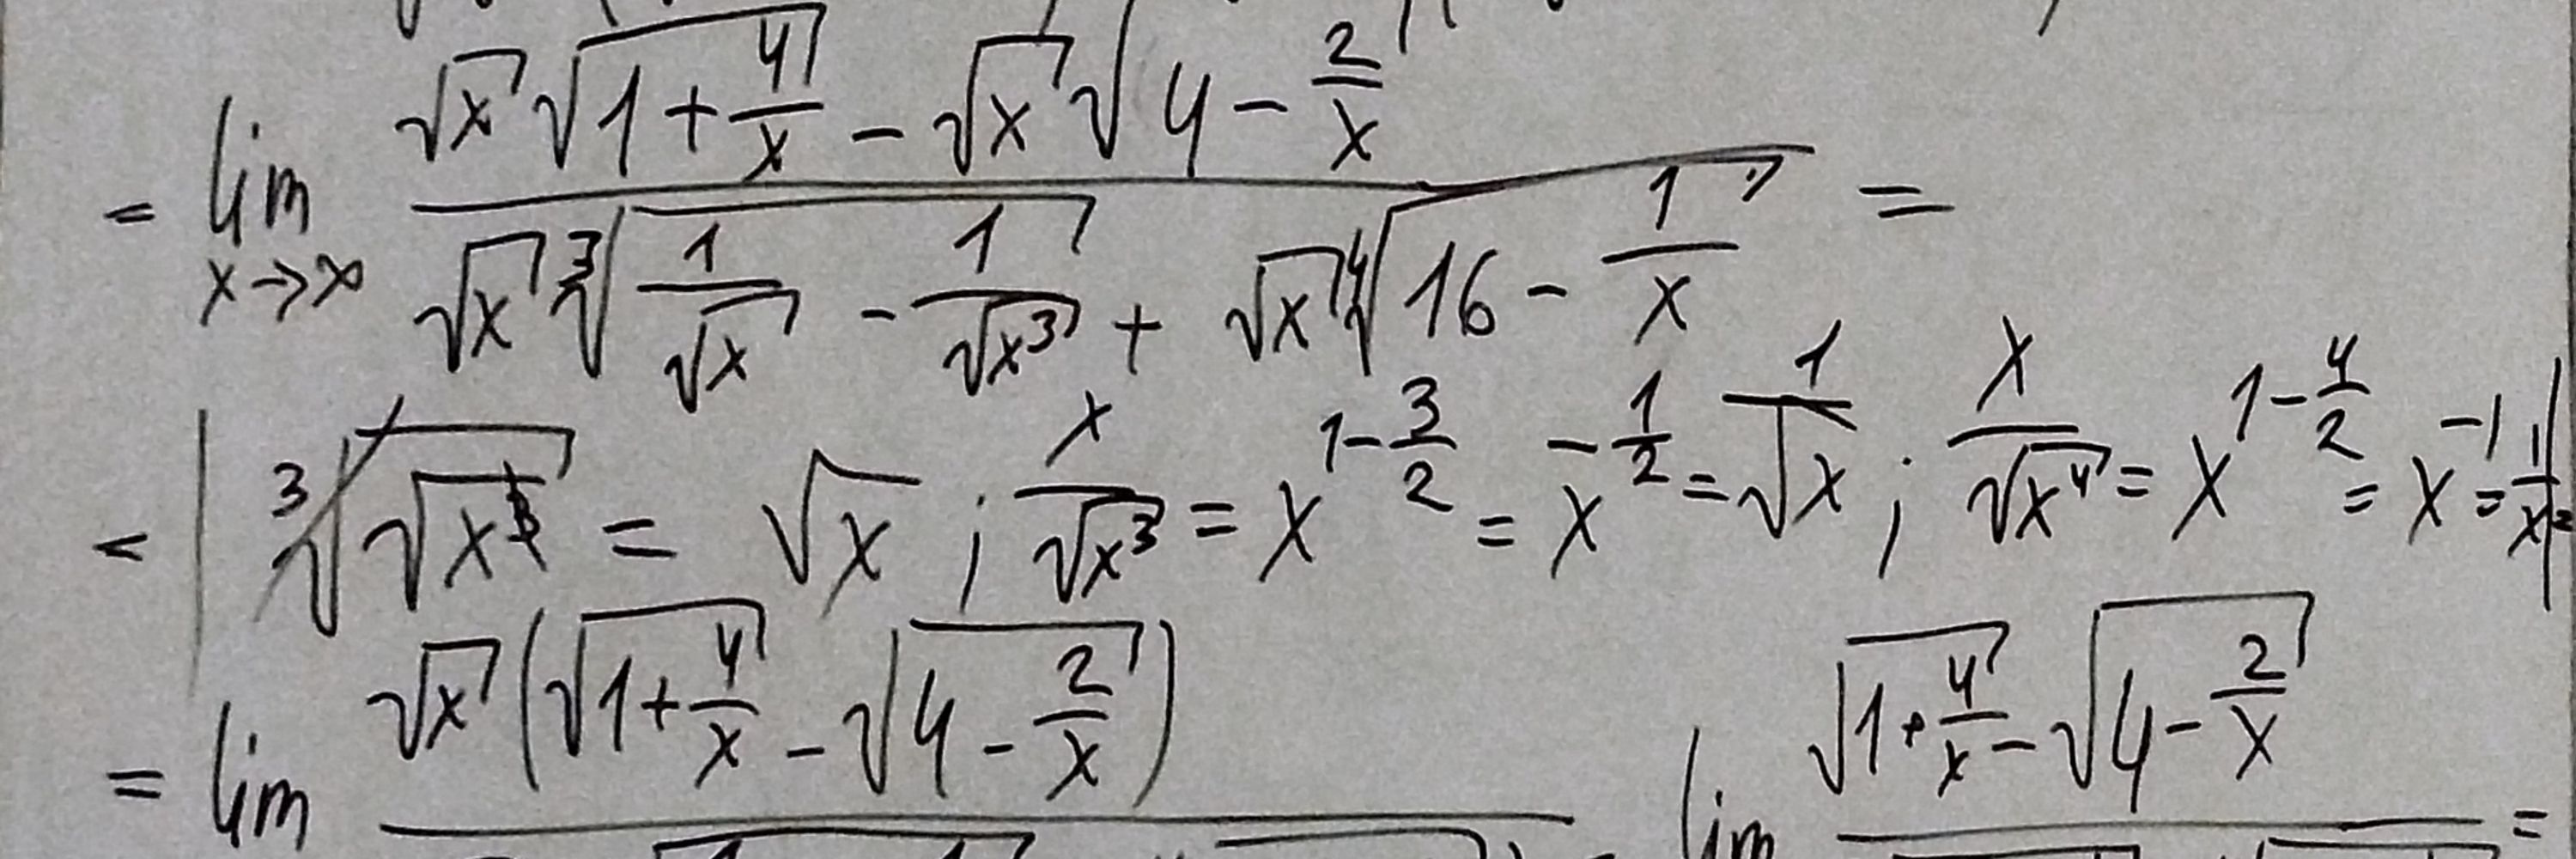 = lim x→∞ (√x √(1 + 4/x) − √x √(4 − 2/x)) / (√x ∛(1/√x − 1/√x³) + √x ∜(16 − 1/x)) =
= | ∛√x³ = √x ; x/√x³ = x^(1−3/2) = x^(−1/2) = 1/√x ; x/√x⁴ = x^(1−4/2) = x^(−1) = 1/x | =
= lim √x (√(1 + 4/x) − √(4 − 2/x)) = lim √(1 + 4/x) − √(4 − 2/x) =